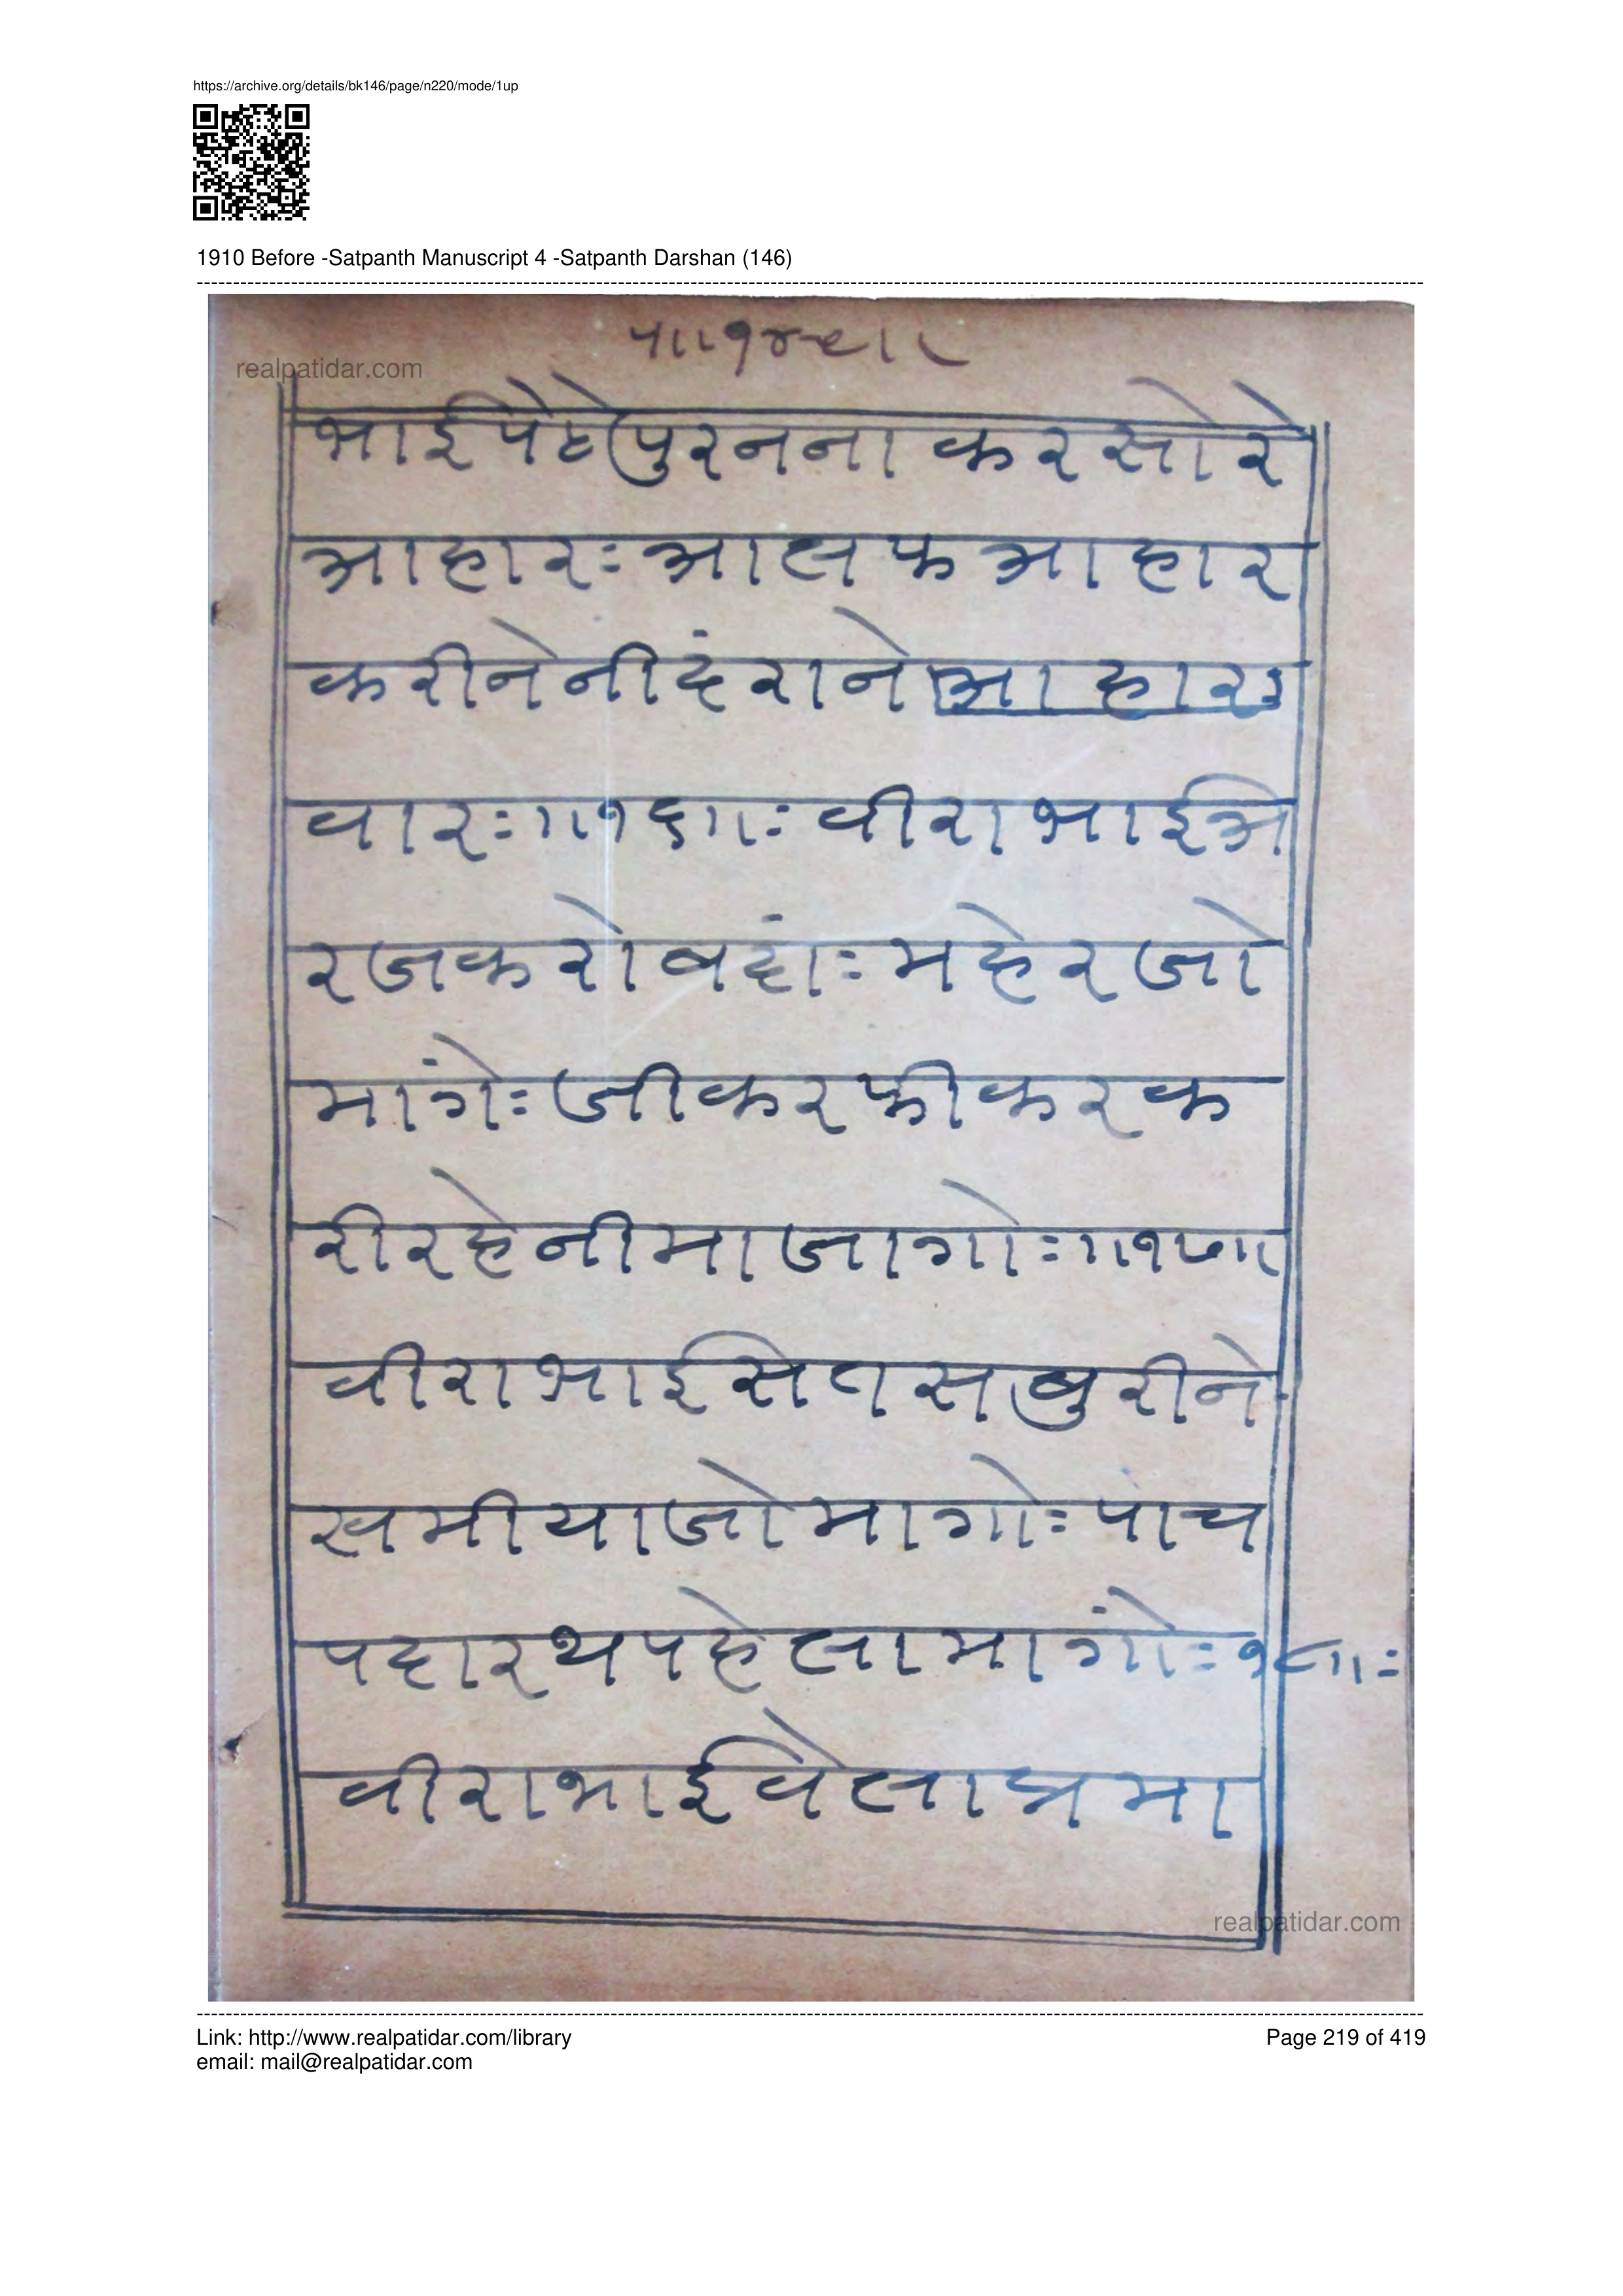 https://archive.org/details/bk146/page/n220/mode/1up
1910 Before -Satpanth Manuscript 4 -Satpanth Darshan (146)
realpatidar.com
भाईपेटपुरनना करसोरे
आहारः आलफ आहार
करीने नीदंराने आहारः
वारः ॥१६॥ः वीराभाईअ
रजकरोबदांः महेरजो
मांगेः जीकरफीकरक
रीरहेनीमाजागोः ॥१७॥
वीराभाईसेतसबुरीने
खमीयाजोमागोः पांच
पदारथपहेलामागोंः १८॥ः
वीराभाईवेलाप्रमा
realpatidar.com
Link: http://www.realpatidar.com/library
Page 219 of 419
email: mail@realpatidar.com